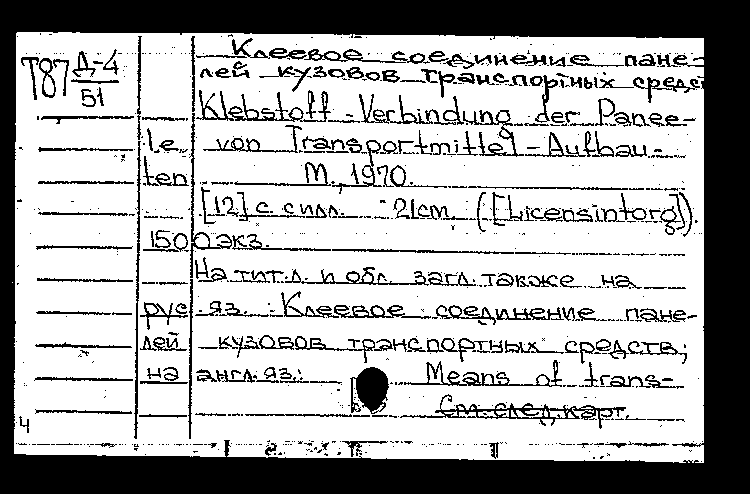 Клеевое соединение пане-
лей кузовов транспортных средст
Т87 Д-4
51
Klebstoff-Verbindung der Panee-
le von Transportmittel-Aufbau-
ten М., 1970.
[12] с. с илл. 21 см. ([Licensintorg]).
1500 экз.
На тит.л. и обл. загл. также на
рус. яз.: Клеевое соединение пане-
лей кузовов транспортных средств;
на англ. яз.: Means of trans-
См. след. карт.
4